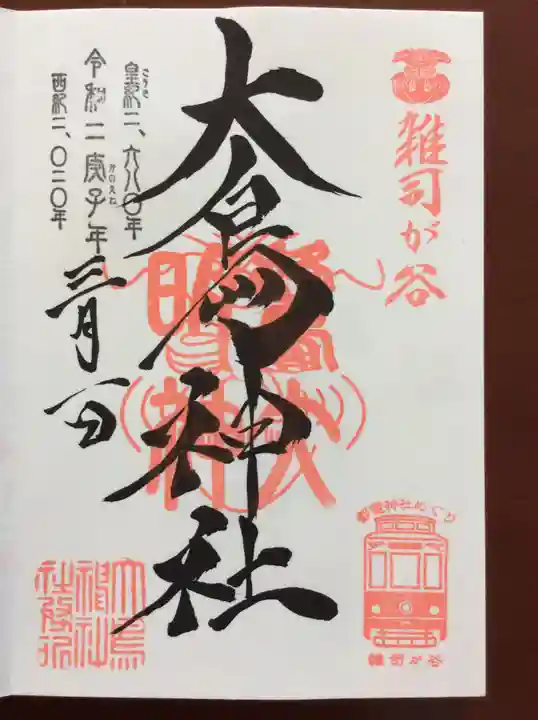 雑司が谷
大鳥神社
皇紀二、六八〇年
こうき
令和二庚子年
かのえね
西紀二、〇二〇年
三月一日
都電神社めぐり
雑司が谷
大鳥
神社
社務所